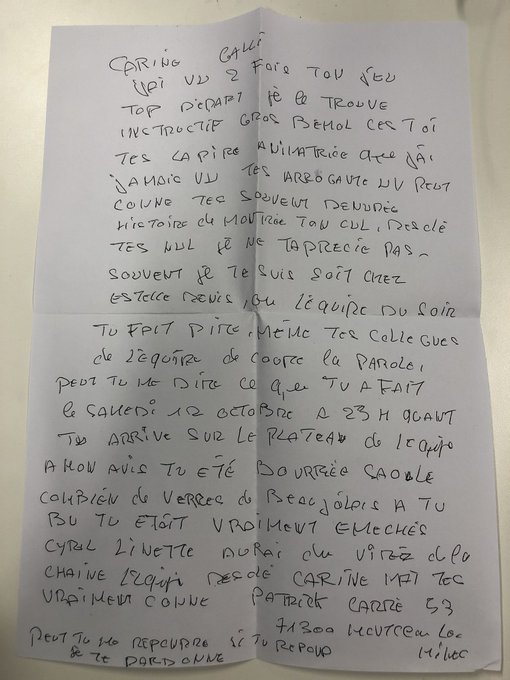 CARINE GALLI
J'AI VU 2 FOIS TON JEU
TOP DEPART Je le TROUVE
INSTRUCTIF GROS BEMOL CES TOI
TES LA PIRE ANIMATRICE que J'AI
JAMAIS VU TES ARROGANTE UN PEUT
CONNE TES SOUVENT DENUDEE
HISTOIRE de MONTREE TON CUL, DESOLÉ
TES NUL Je NE TAPRECIE PAS
SOUVENT Je TE SUIS SOIT CHEZ
ESTELLE DENIS, OU L'EQUIPE DU SOIR
TU FAIT PIRE, MÊME TES COLLEGUES
de L'EQUIPE de COUPE la PAROLE,
PEUT TU ME DIRE CE que TU A FAIT
le SAMEDI 12 OCTOBRE A 23 H QUANT
TU ARRIVE SUR LE PLATEAU de l'equipe
A MON AVIS TU ETÉ BOURRÉE SAOULE
COMBIEN de VERRES de BEAUJOLAIS A TU
BU TU ETAIT VRAIMENT EMECHÉS
CYRIL LINETTE AURAI du VIREZ de la
CHAINE L'EQUIPE DESOLÉ CARINE MAI TES
VRAIMENT CONNE PATRICK CARRÉ 53
71300 MONTCEAU LES
MINES
PEUT TU ME REPONDRE SI TU REPOND
Je TE PARDONNE